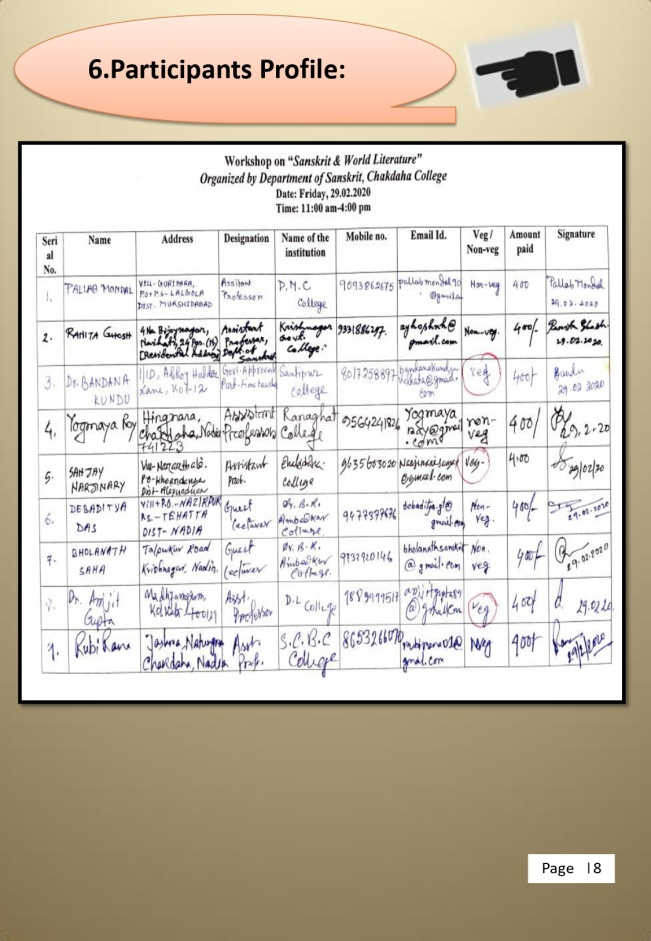 6.Participants Profile:
Workshop on "Sanskrit & World Literature"
Organized by Department of Sanskrit, Chakdaha College
Date: Friday, 29.02.2020
Time: 11:00 am-4:00 pm
Seri al No. Name Address Designation Name of the institution Mobile no. Email Id. Veg / Non-veg Amount paid Signature
1. PALLAB MONDAL VILL- GURIPARA, P.O+P.S- LALGOLA DIST. MURSHIDABAD Assistant Professor P.N.C College 9093862675 pallabmondal90 @gmail. Non-veg 400 Pallab Mondal 29.02.2020
2. RANITA GHOSH 4 No Bijoynagar, Naihati, 24 Pgs. (N) [Residential Address] Assistant Professor, Dept. of Sanskrit Krishnagar Govt. College. Non-veg. 400/- 29.02.2020
3. Dr. BANDANA KUNDU 11D, Abhoy Halder Lane, Kol-12 Govt-Approved Part-time teacher Santipur College 8017258897 Veg 400/- 29.02.2020
4. Yogmaya Roy Hingnara, Chakdaha, Nadia 741223 Assistant Professor Ranaghat College 9564241826 Yogmaya @gmail .com non-veg 400/ 29.2.20
5. SANJAY NARJINARY Assistant Prof. College 9635603020 @gmail.com Veg- 400 29/02/20
6. DEBADITYA DAS VILL+P.O.-NAZIRPUR P.S.- TEHATTA DIST- NADIA Guest Lecturer Dr. B.R. Ambedkar College. 9477377676 gmail.com Non-veg. 400/- 29.02.2020
7. BHOLANATH SAHA Talpukur Road Krishnagar, Nadia. Guest Lecturer Dr. B.R. Ambedkar College. 9732920146 bholanathsanskrit @gmail.com Non. veg 400/- 29.02.2020
Dr. Gupta Madhyamgram, Kolkata-700129 Asst. Professor D.L College Veg 400/ 29.02.20
9. Rubi Rana Chakdaha, Nadia Asst. Prof. S.C.B.C College 8653266070 rubirana01@ gmail.com Nveg 400/ 29/2/2020
Page |8